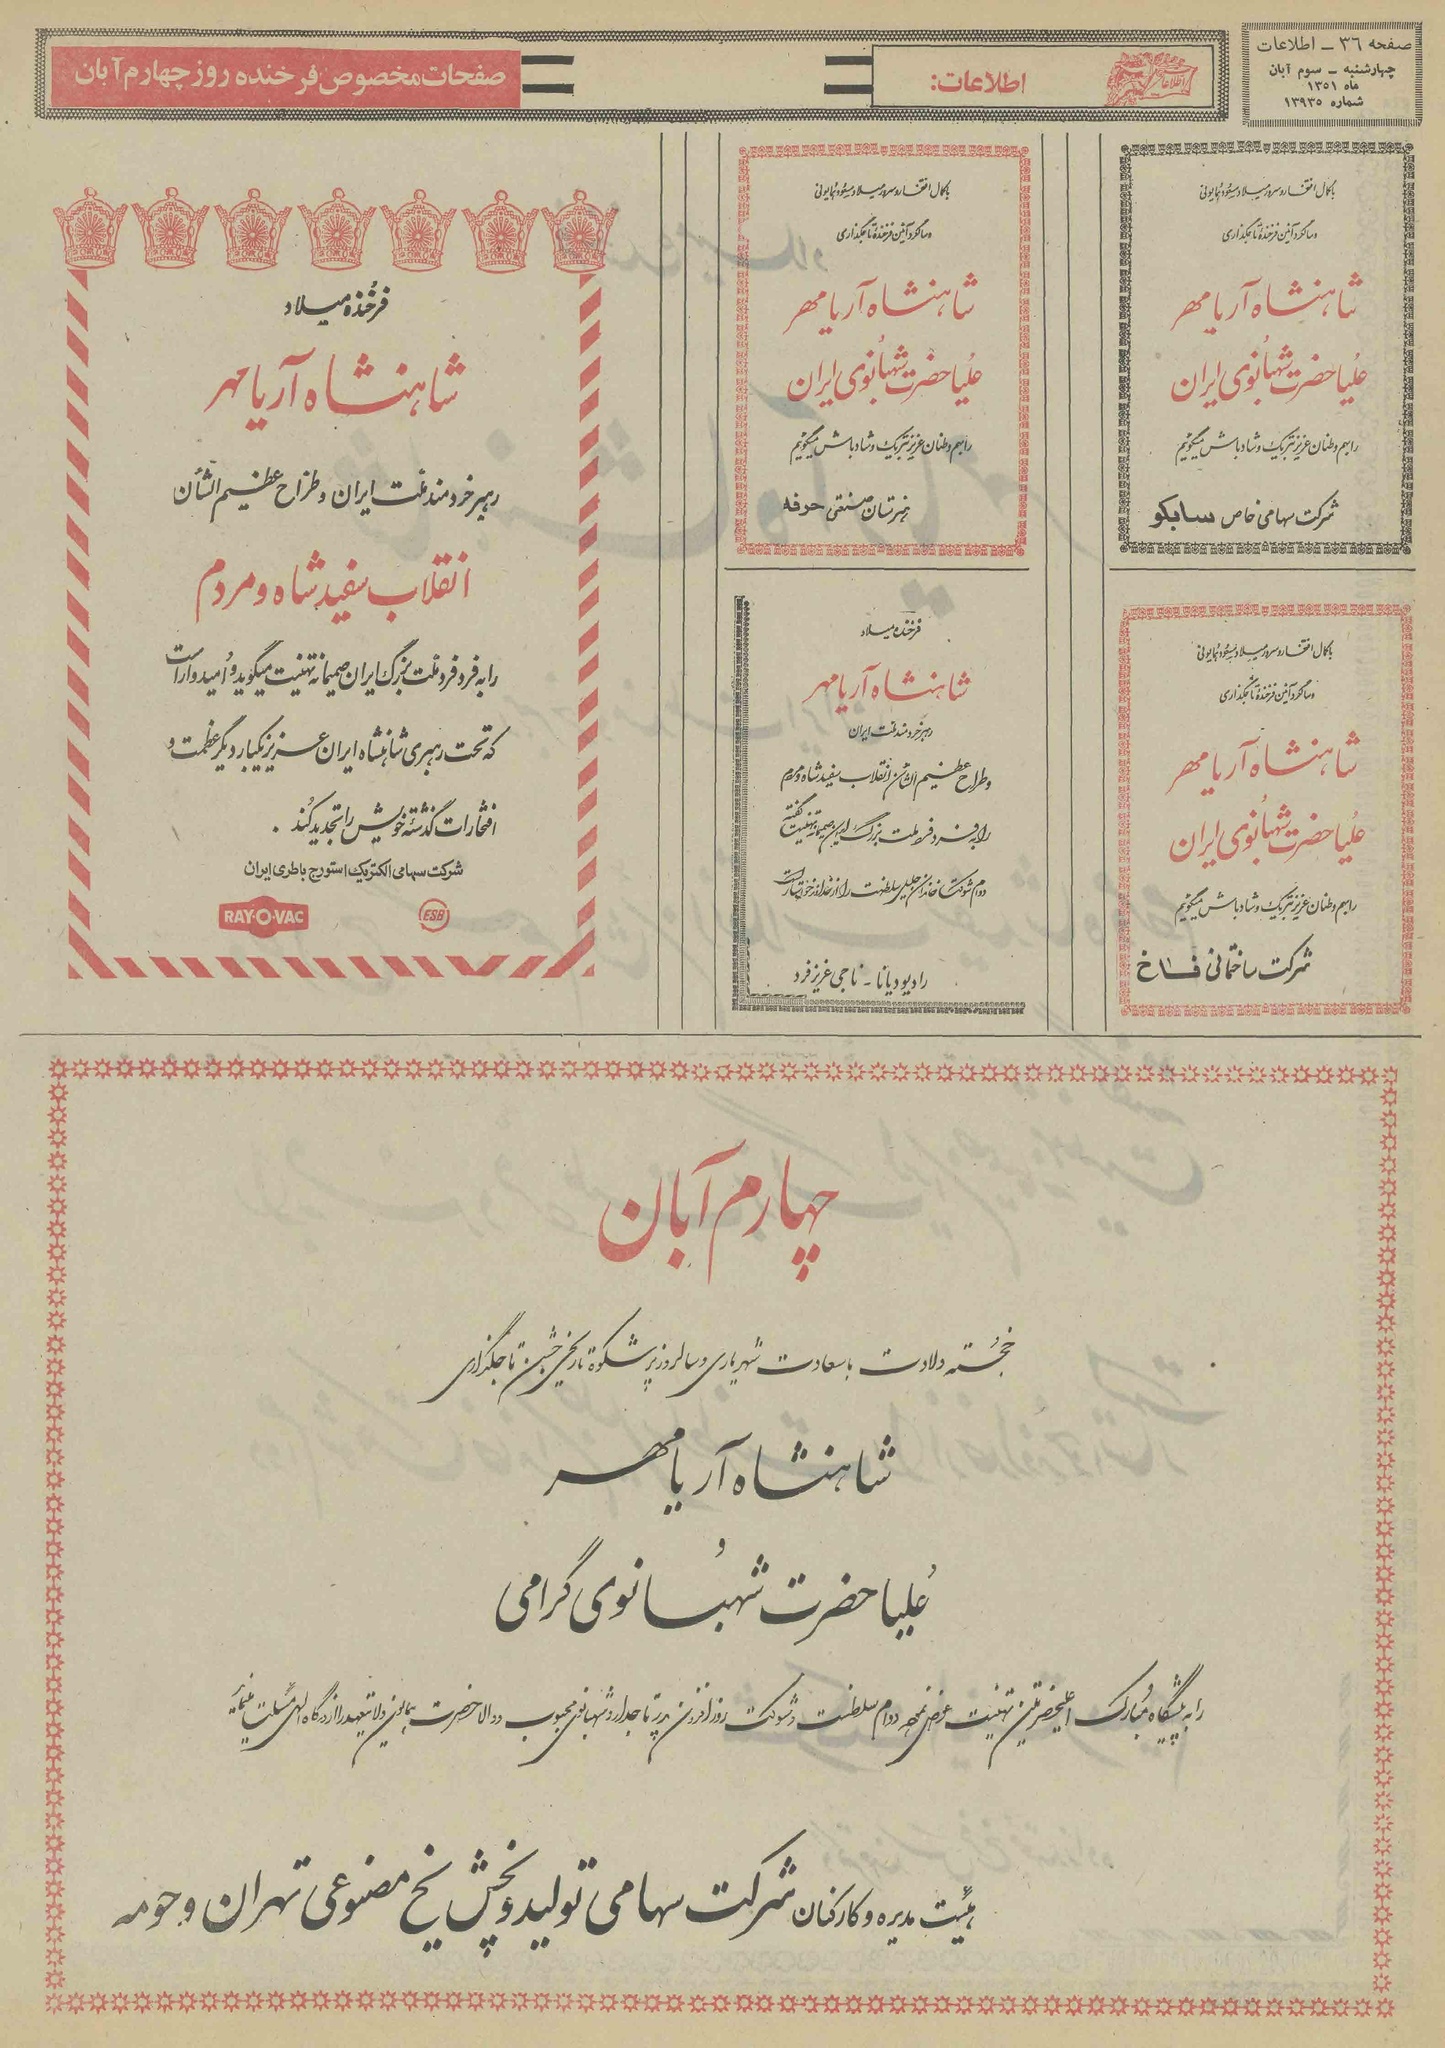 صفحه ۳۶ ـ اطلاعات
چهارشنبه ـ سوم آبان
ماه ۱۳۵۱
شماره ۱۳۹۳۵
اطلاعات:
صفحات مخصوص فرخنده روز چهارم آبان
با کمال افتخار و سرور میلاد مسعود همایونی
و سالگرد آئین فرخندهٔ تاجگذاری
شاهنشاه آریامهر
علیاحضرت شهبانوی ایران
را بهم وطنان عزیز تبریک و شادباش میگوئیم
شرکت سهامی خاص سابکو
با کمال افتخار و سرور میلاد مسعود همایونی
و سالگرد آئین فرخندهٔ تاجگذاری
شاهنشاه آریامهر
علیاحضرت شهبانوی ایران
را بهم وطنان عزیز تبریک و شادباش میگوئیم
شرکت ساختمانی فاخ
با کمال افتخار و سرور میلاد مسعود همایونی
و سالگرد آئین فرخندهٔ تاجگذاری
شاهنشاه آریامهر
علیاحضرت شهبانوی ایران
را بهم وطنان عزیز تبریک و شادباش میگوئیم
هنرستان صنعتی حرفه
فرخنده میلاد
شاهنشاه آریامهر
رهبر خردمند ملت ایران
و طراح عظیم الشأن انقلاب سفید شاه و مردم
را به فرد فرد ملت بزرگ ایران صمیمانه تهنیت گفته
دوام شوکت خاندان جلیل سلطنت را از خداوند خواستار است
رادیو دیانا ـ ناجی عزیز فرد
فرخنده میلاد
شاهنشاه آریامهر
رهبر خردمند ملت ایران و طراح عظیم الشأن
انقلاب سفید شاه و مردم
را به فرد فرد ملت بزرگ ایران صمیمانه تهنیت میگوید و امیدوار است
که تحت رهبری شاهنشاه ایران عزیز یکبار دیگر عظمت و
افتخارات گذشته خویش را تجدید کند .
شرکت سهامی الکتریک استورج باطری ایران
RAY-O-VAC
ESB
چهارم آبان
خجسته ولادت با سعادت شهریاری و سالروز پرشکوه تاریخی جشن تاجگذاری
شاهنشاه آریامهر
و
علیاحضرت شهبانوی گرامی
را به پیشگاه مبارک اعلیحضرتین تهنیت عرض نموده دوام سلطنت و شوکت روزافزون پدر تاجدار و شهبانوی محبوب و والاحضرت همایون ولایتعهد را از درگاه الهی مسئلت مینمائیم
هیئت مدیره و کارکنان شرکت سهامی تولید و پخش یخ مصنوعی تهران و حومه